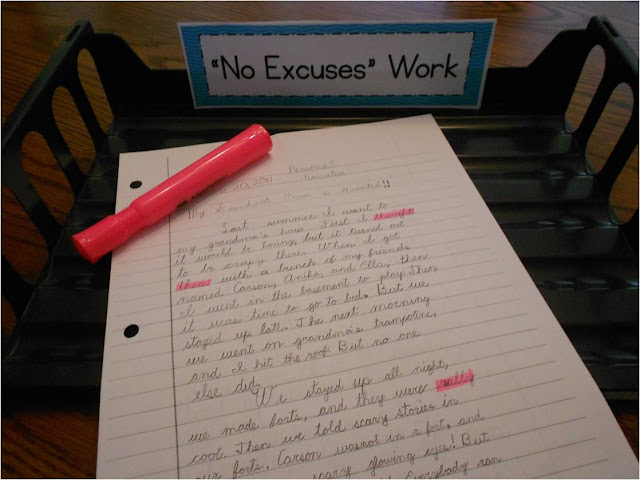 "No Excuses" Work
Personal
20, 2011 Narrative
My
Last summer I went to
my grandma's house. First I thought
it would be boring, but it turned out
to be crazy there. When I got
there with a bunch of my friends
named Carson, Anika, and Ella, then
I went in the basement to play. Then
it was time to go to bed. But we
stayed up late. The next morning
we went on grandma's trampoline,
and I hit the roof. But no one
else did.
We stayed up all night,
we made forts, and they were really
cool. Then we told scary stories in
our forts. Carson was not in a fort, and
scary glowing eyes! But
Everybody ran